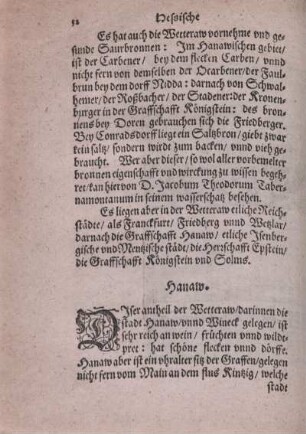 52 Hessische
Es hat auch die Wetteraw vornehme vnd ge-
sunde Saurbronnen: Jm Hanawischen gebiet/
ist der Carbener/ bey dem flecken Carben/ vnnd
nicht fern von demselben der Ocarbener/der Faul-
brun bey dem dorff Nidda: darnach von Schwal-
hemer/ der Roßbacher/ der Stadener: der Kronen-
burger in der Graffschafft Königstein: des bron-
nens bey Doren gebrauchen sich die Friedberger.
Bey Conradsdorff liegt ein Saltzbron/ giebt zwar
kein saltz/ sondern wirdt zum backen/ vnnd vieh ge-
braucht. Wer aber dieser/ so wol aller vorbemelter
bronnen eigenschafft vnd wirckung zu wissen begeh-
ret/kan hiervon D. Jacobum Theodorum Taber-
namontanum in seinem wasserschatz besehen.
Es liegen aber in der Wetteraw etliche Reich-
städte/ als Franckfurt/ Friedberg vnnd Wetzlar/
darnach die Graffschafft Hanaw/ etliche Jsenber-
gische vnd Mentzische städt/ die Herschafft Epstein/
die Graffschafft Königstein vnd Solms.
Hanaw.
DJser antheil der Wetteraw/darinnen die
stadt Hanaw/vnnd Wineck gelegen/ ist
sehr reich an wein/ früchten vnnd wild-
pret: hat schöne flecken vnnd dörffe.
Hanaw aber ist ein vhralter sitz der Graffen/gelegen
nicht fern vom Main an dem flus Kintzig/ welche
stadt